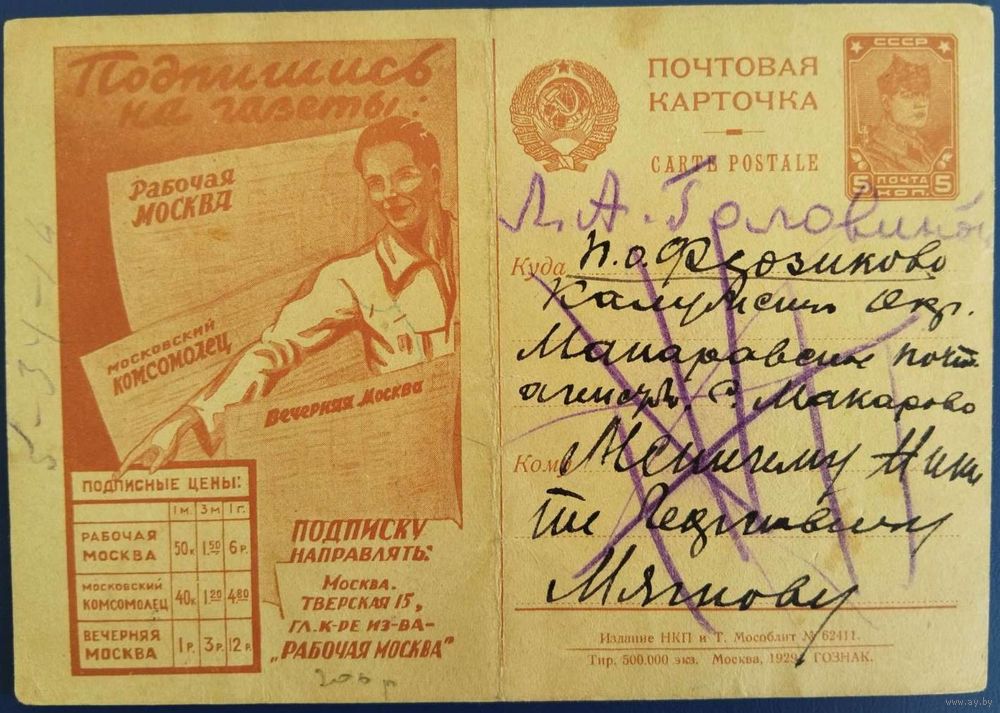 Подпишись
на газеты:
Рабочая
Москва
Московский
Комсомолец
Вечерняя Москва
ПОДПИСНЫЕ ЦЕНЫ:
1м. 3м 1г.
РАБОЧАЯ МОСКВА 50к 1.50 6р.
МОСКОВСКИЙ КОМСОМОЛЕЦ 40к 1.20 4.80
ВЕЧЕРНЯЯ МОСКВА 1р. 3р. 12р.
ПОДПИСКУ
НАПРАВЛЯТЬ:
Москва.
ТВЕРСКАЯ 15,
ГЛ. К-РЕ ИЗ-ВА-
„РАБОЧАЯ МОСКВА"
5-34-19
СССР
ПОЧТА
5 КОП. 5
ПОЧТОВАЯ
КАРТОЧКА
CARTE POSTALE
Л. А. Головиной
Куда п.о. Ферзиково
Калужский Окр.
почт.
с. Макарово
Кому
Мягкову
Издание НКП и Т. Мособлит № 62411.
Тир. 500.000 экз. Москва, 1929. ГОЗНАК.
www.ay.by